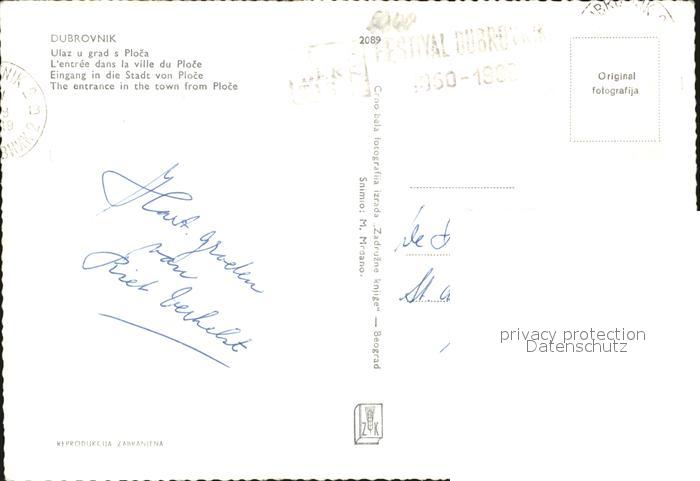 DUBROVNIK
Ulaz u grad s Ploča
L'entrée dans la ville du Ploče
Eingang in die Stadt von Ploče
The entrance in the town from Ploče
2089
FESTIVAL DUBROVNIK
Original
fotografija
Crno bela fotografija izrada „Zadružne knjige" — Beograd
Snimio: M. Mrdano.
Hart. groeten
van
Riet Verhelst
De
St.
privacy protection
Datenschutz
Z K
REPRODUKCIJA ZABRANJENA